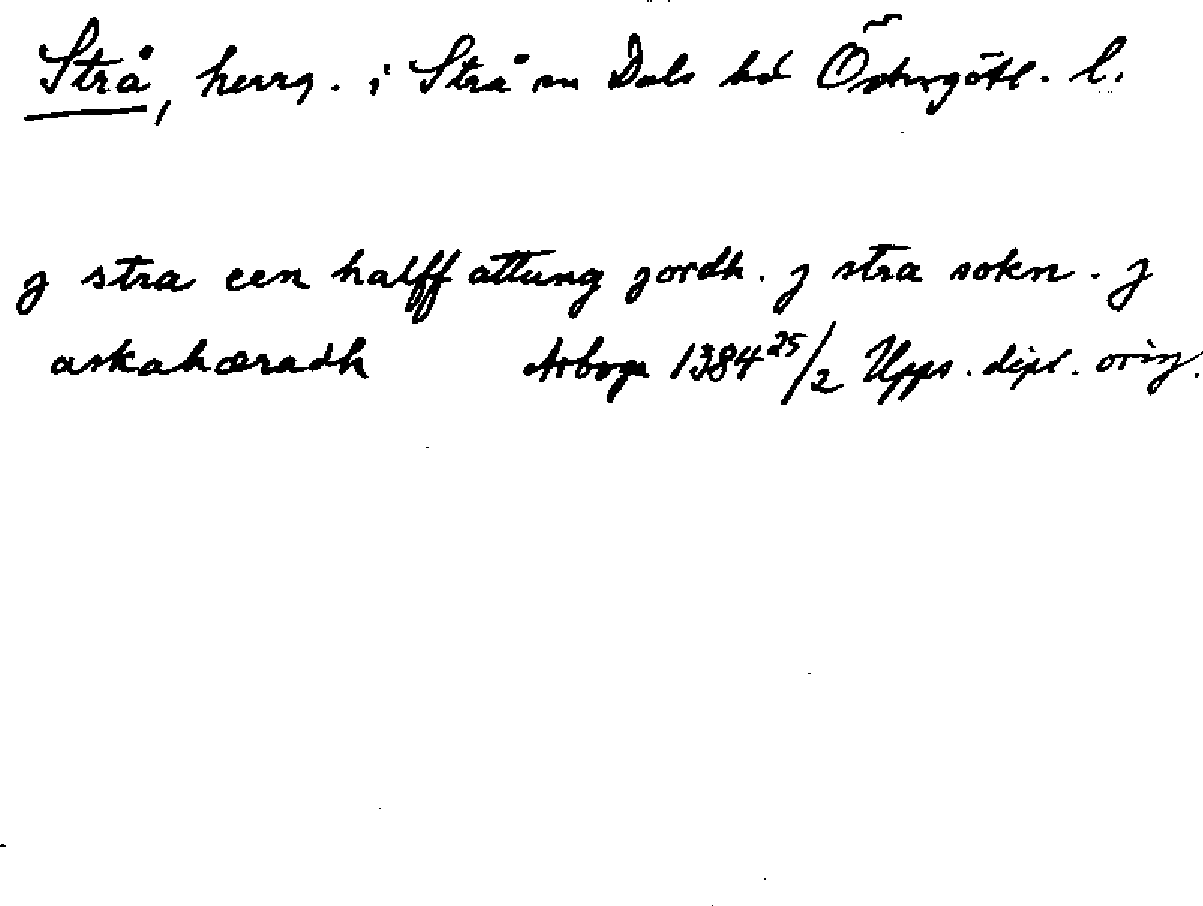 Strå, herrg. i Strå sn Dals hd Östergötl. l.
j stra een halff attung jordh. j stra sokn. j
askahæradh Arboga 1384 25/2 Upps. dipl. orig.